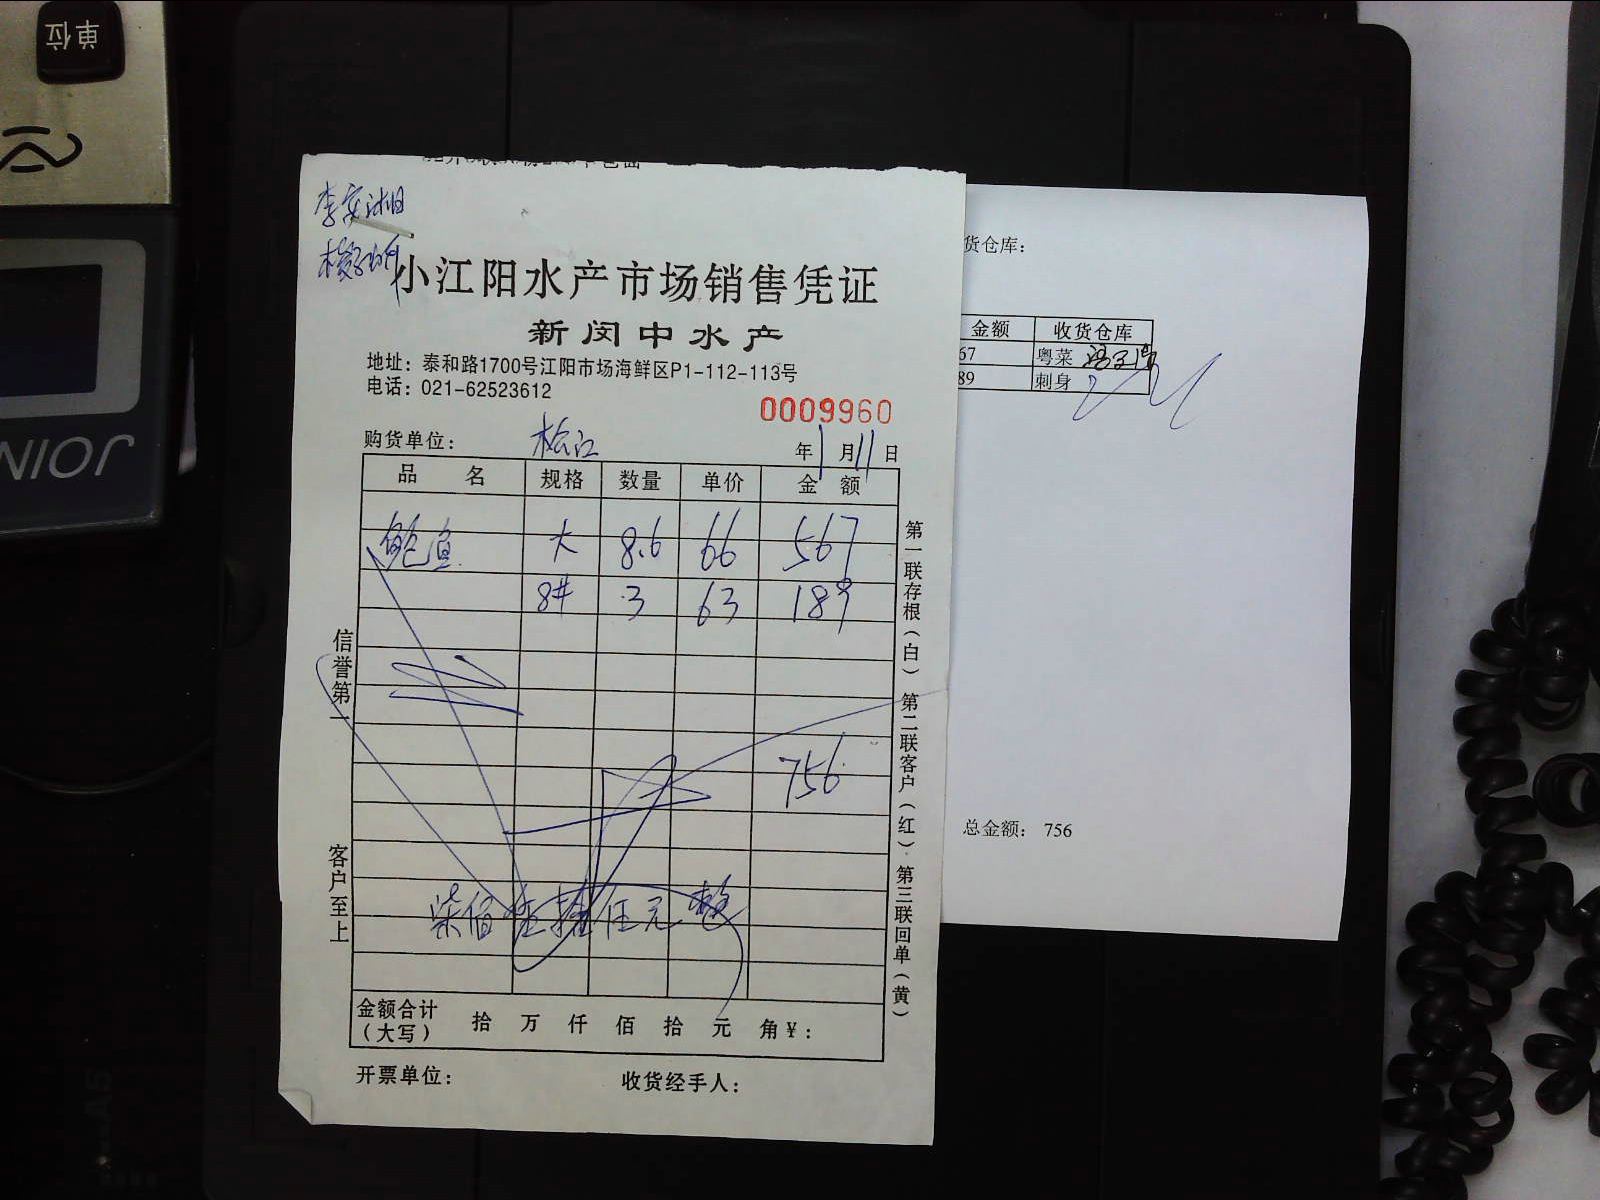 单位
JOIN
李实湘
小江阳水产市场销售凭证
新闵中水产
地址：泰和路1700号江阳市场海鲜区P1-112-113号
电话：021-62523612
0009960
购货单位： 松江 年 1 月 11 日
品 名 规格 数量 单价 金 额
鲍鱼 大 8.6 66 567
8# 3 63 189
756
柒佰伍拾陆元整
金额合计（大写） 拾 万 仟 佰 拾 元 角 ¥：
开票单位： 收货经手人：
信誉第一
客户至上
第一联存根（白） 第二联客户（红） 第三联回单（黄）
货仓库：
金额 收货仓库
67 粤菜
89 刺身
总金额： 756